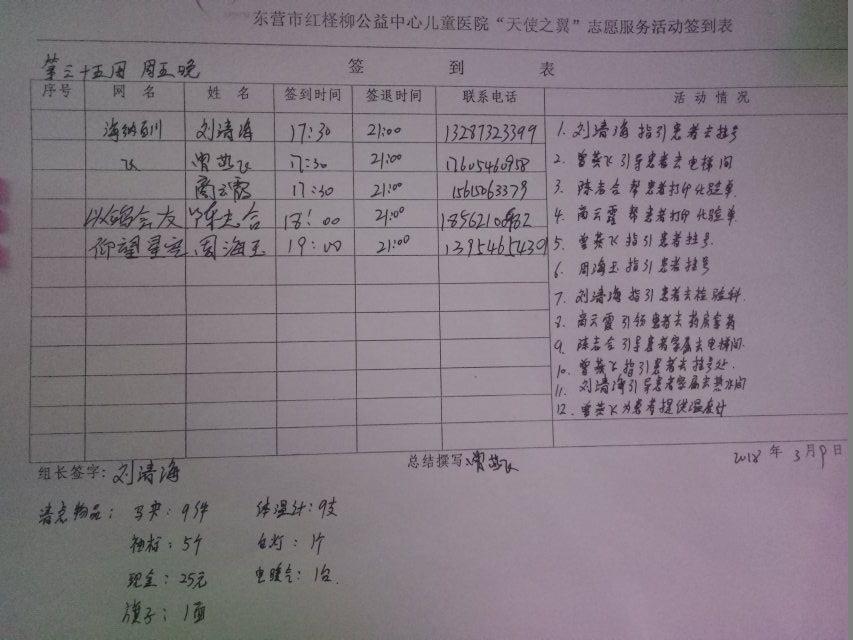 东营市红柽柳公益中心儿童医院“天使之翼”志愿服务活动签到表
第三十五周 周五晚 签 到 表
序号 网 名 姓 名 签到时间 签退时间 联系电话 活 动 情 况
海纳百川 刘清海 17:30 21:00 13287323399
飞 曾英飞 17:30 21:00 17605460958
商云霞 17:30 21:00 15615063379
以善会友 陈志合 18:00 21:00
仰望星空 周海玉 19:00 21:00 13954654
1. 刘清海指引患者去挂号
2. 曾英飞引导患者去电梯间
3. 陈志合帮患者打印化验单
4. 商云霞帮患者打印化验单
5. 曾英飞指引患者挂号
6. 周海玉指引患者挂号
7. 刘清海指引患者去检验科
8. 商云霞引领患者去药房拿药
9. 陈志合引导患者家属去电梯间
10. 曾英飞指引患者去挂号处
11. 刘清海引导患者家属去热水间
12. 曾英飞为患者提供温度计
组长签字: 刘清海 总结撰写: 曾英飞 2018 年 3 月 9 日
清点物品: 马夹: 9件 体温计: 9支
袖标: 5个 台灯: 1个
现金: 25元 电暖气: 1台
旗子: 1面